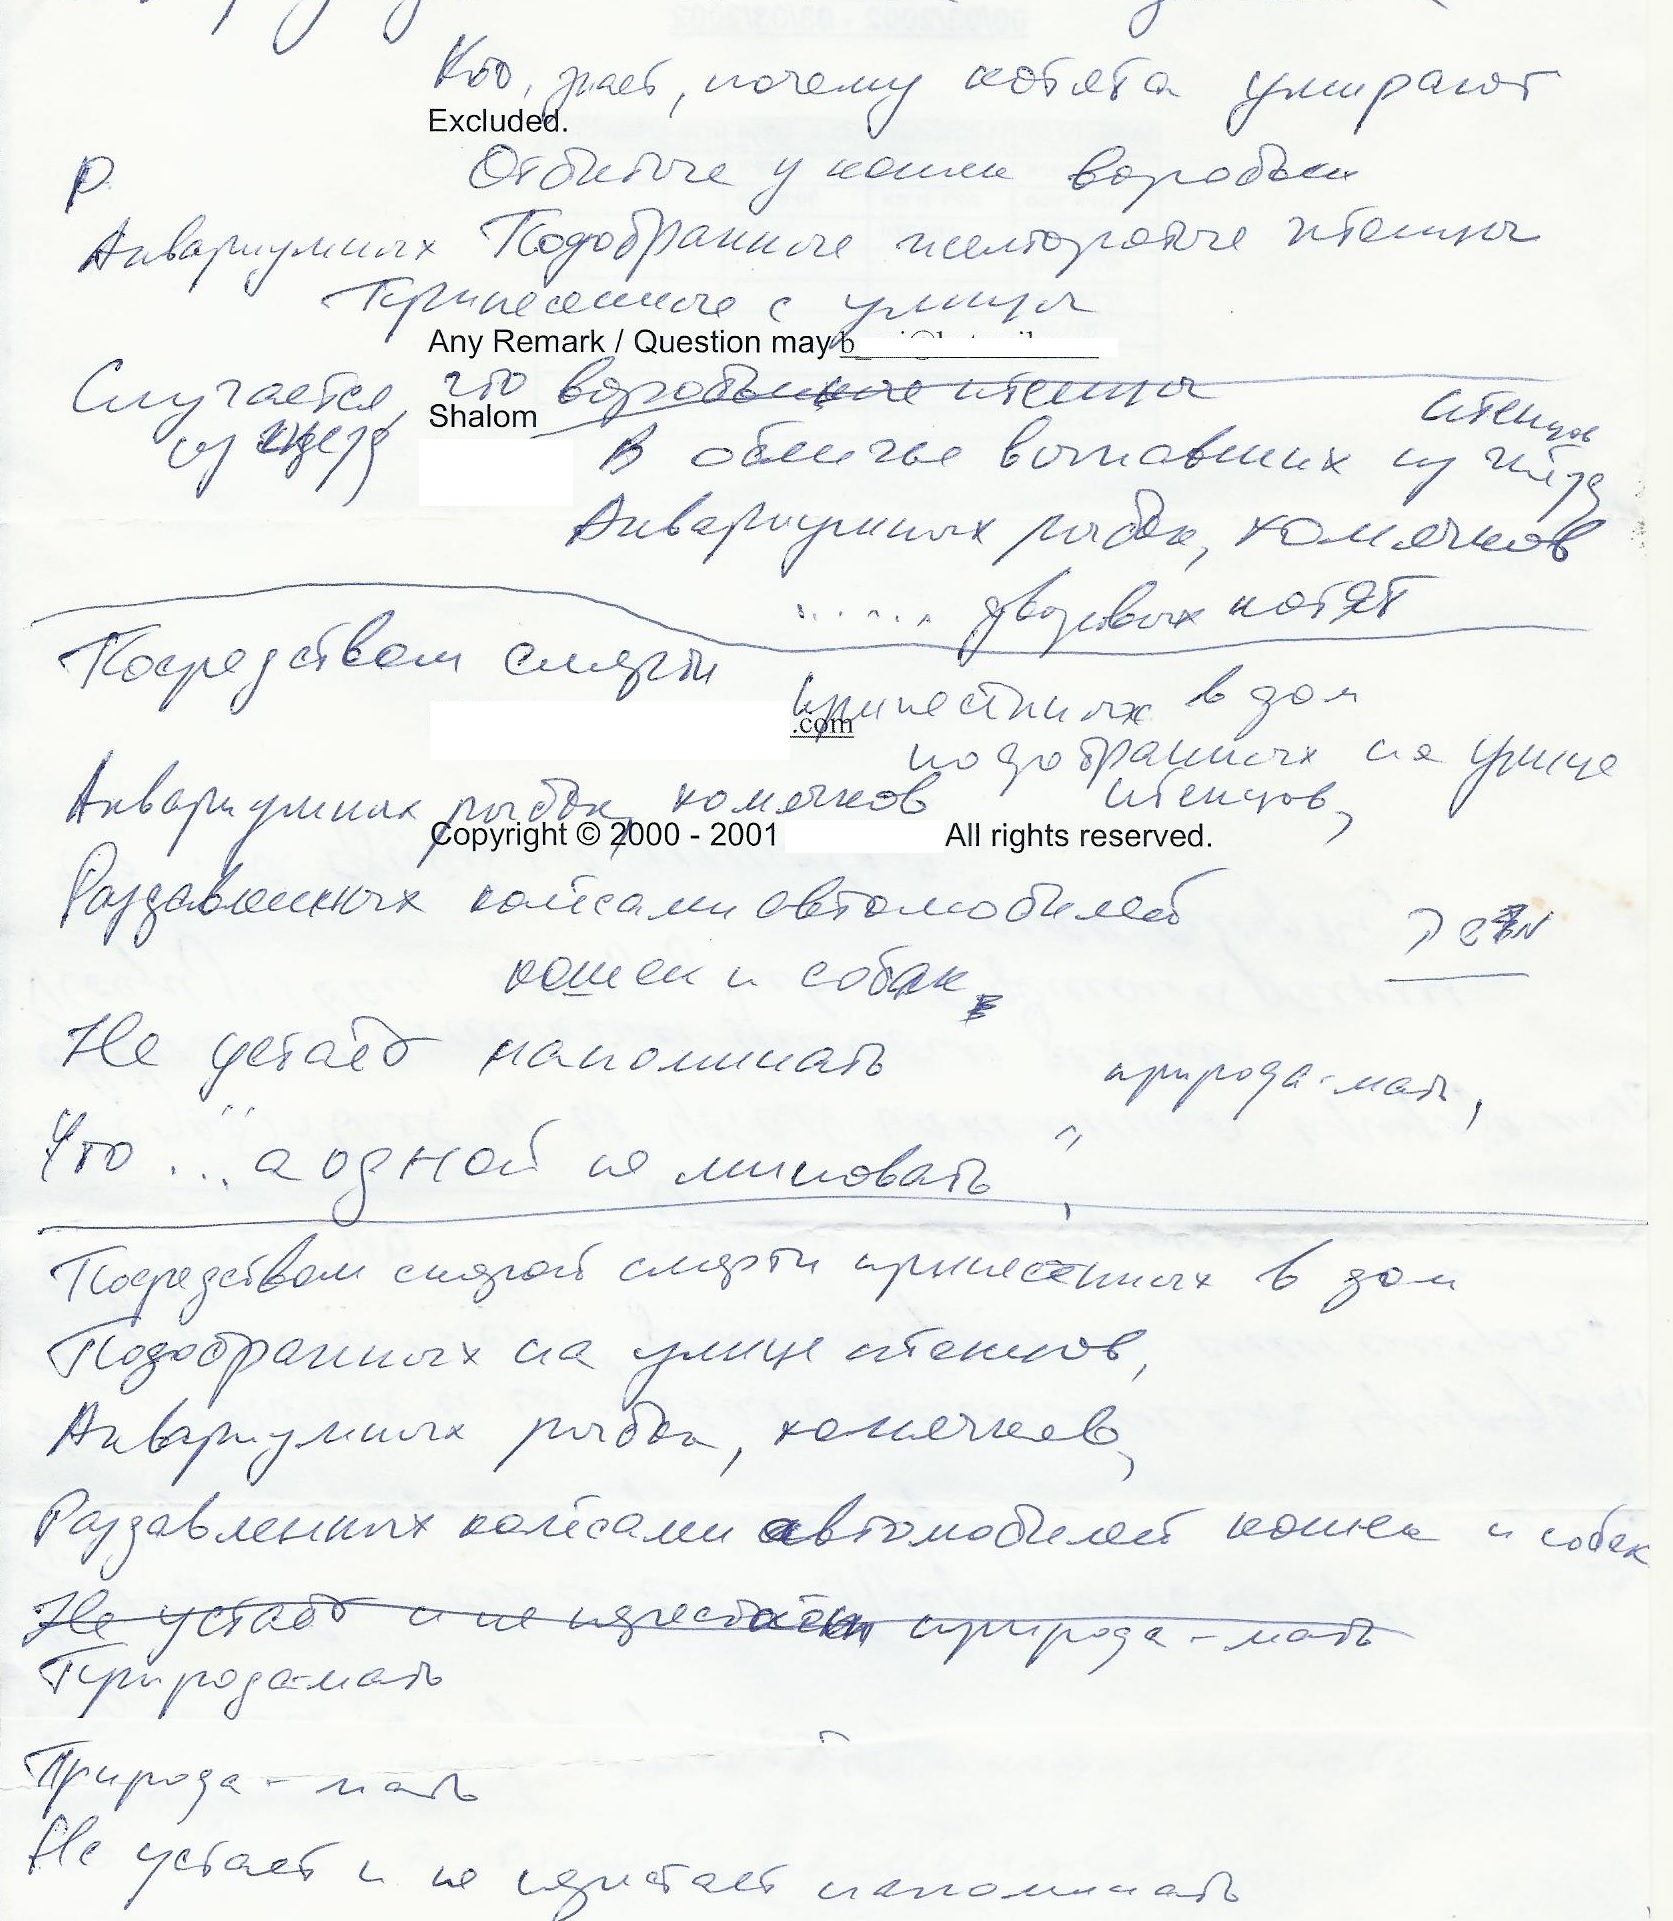 Кто, знает, почему котята умирают
Excluded.
Р
Отбитые у кошки воробьи
Аквариумных Подобранные желторотые птенцы
Принесенные с улицы
Any Remark / Question may b
Случается, что воробьиные птенцы
Shalom
птенцов
из гнезд
В обличье выпавших из гнёзд
Аквариумных рыбок, хомячков
...... дворовых котят
Посредством смерти
принесённых в дом
.com
подобранных на улице
Аквариумных рыбок, хомячков птенцов,
Copyright © 2000 - 2001 All rights reserved.
Раздавленных колёсами автомобилей
кошек и собак
Не устаёт напоминать
природа-мать,
Что "... а одной не миновать",
Посредством скорой смерти принесенных в дом
Подобранных на улице птенцов,
Аквариумных рыбок, хомячков,
Раздавленных колёсами автомобилей кошек и собак
Не устаёт и не перестаёт природа-мать
Природа-мать
Природа-мать
Не устаёт и не перестаёт напоминать